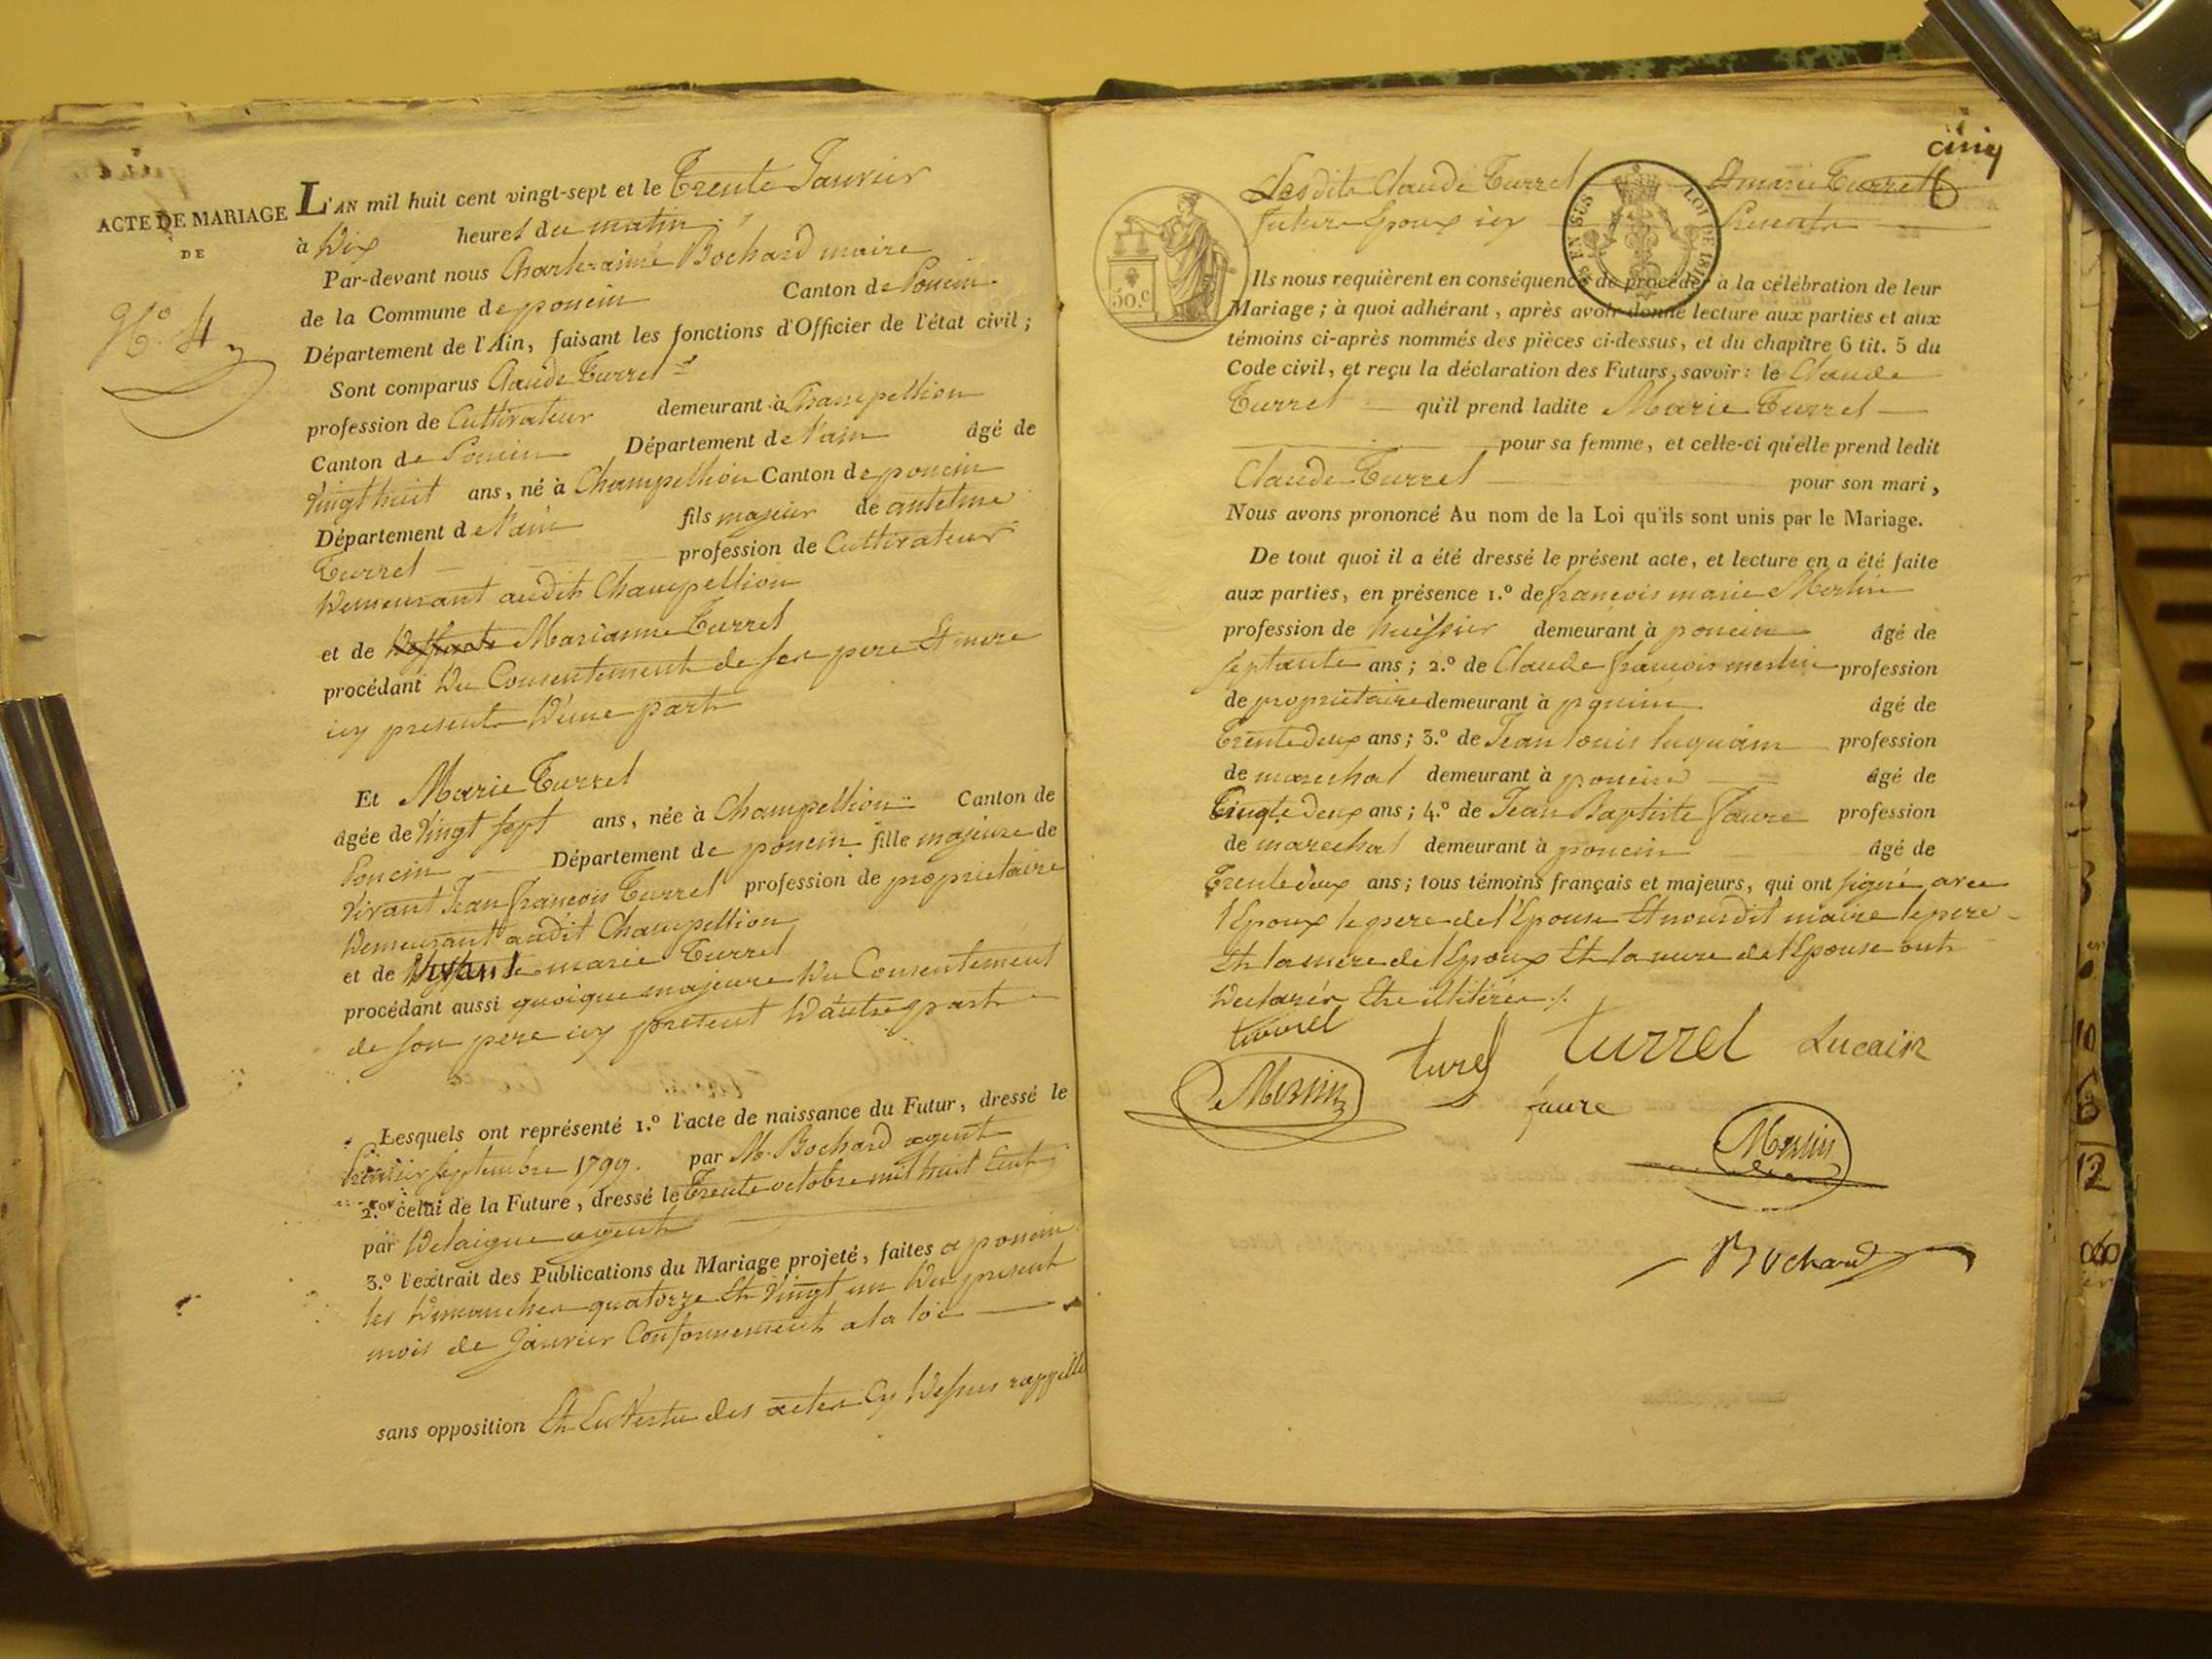 ACTE DE MARIAGE
DE
N.o 4
L'AN mil huit cent vingt-sept et le Trente Janvier
à Dix heures du matin
Par-devant nous Charle-aimé Bochard maire
de la Commune de poncin Canton de Poncin
Département de l'Ain, faisant les fonctions d'Officier de l'état civil;
Sont comparus Claude Turrel
profession de Cultivateur demeurant à Champellion
Canton de Poncin Département de l'ain âgé de
Vingt huit ans, né à Champellion Canton de poncin
Département de l'ain fils majeur de antelme
Turrel profession de Cultivateur
Demeurant audit Champellion
et de Marianne Turrel
procédant Du Consentement de ses pere Et mere
icy presents D'une part
Et Marie Turrel
âgée de Vingt sept ans, née à Champellion Canton de
Poncin Département de poncin fille majeure de
Vivant Jean françois Turrel profession de proprietaire
Demeurant audit Champellion
et de marie Turrel
procédant aussi quoique majeure Du Consentement
de son pere icy present D'autre part
Lesquels ont représenté 1.º l'acte de naissance du Futur, dressé le
septembre 1799. par M. Bochard agent
2.º celui de la Future, dressé le Trente octobre mil huit Cent
par Delaigue agent
3.º l'extrait des Publications du Mariage projeté, faites a poncin
les Dimanches quatorze Et Vingt un Du present
mois de Janvier Conformement a la loi
sans opposition Et En Vertu des actes Cy Dessus rappellés
cinq
6
Lesdits Claude Turrel Et marie Turrel
futurs Epoux icy Presents
50.c
LOI DE 1816
Ils nous requièrent en conséquence de procéder à la célébration de leur
Mariage; à quoi adhérant, après avoir donné lecture aux parties et aux
témoins ci-après nommés des pièces ci-dessus, et du chapitre 6 tit. 5 du
Code civil, et reçu la déclaration des Futurs, savoir: le Claude
Turrel qu'il prend ladite Marie Turrel
pour sa femme, et celle-ci qu'elle prend ledit
Claude Turrel pour son mari,
Nous avons prononcé Au nom de la Loi qu'ils sont unis par le Mariage.
De tout quoi il a été dressé le présent acte, et lecture en a été faite
aux parties, en présence 1.º de françois marie Merlin
profession de huissier demeurant à poncin âgé de
septante ans; 2.º de Claude françois merlin profession
de proprietaire demeurant à poncin âgé de
Trente Deux ans; 3.º de Jean louis luquain profession
de marechal demeurant à poncin âgé de
Deux ans; 4.º de Jean Baptiste Faure profession
de marechal demeurant à poncin âgé de
Trente deux ans; tous témoins français et majeurs, qui ont signé avec
l'Epoux le pere de l'Epouse Et nousdit maire le pere
Et la mere de l'Epoux Et la mere de l'Epouse ont
Declarés Etre illitérés ./.
turrel
turel turrel Lucain
Merlin
faure
Merlin
Bochard
10
6
12